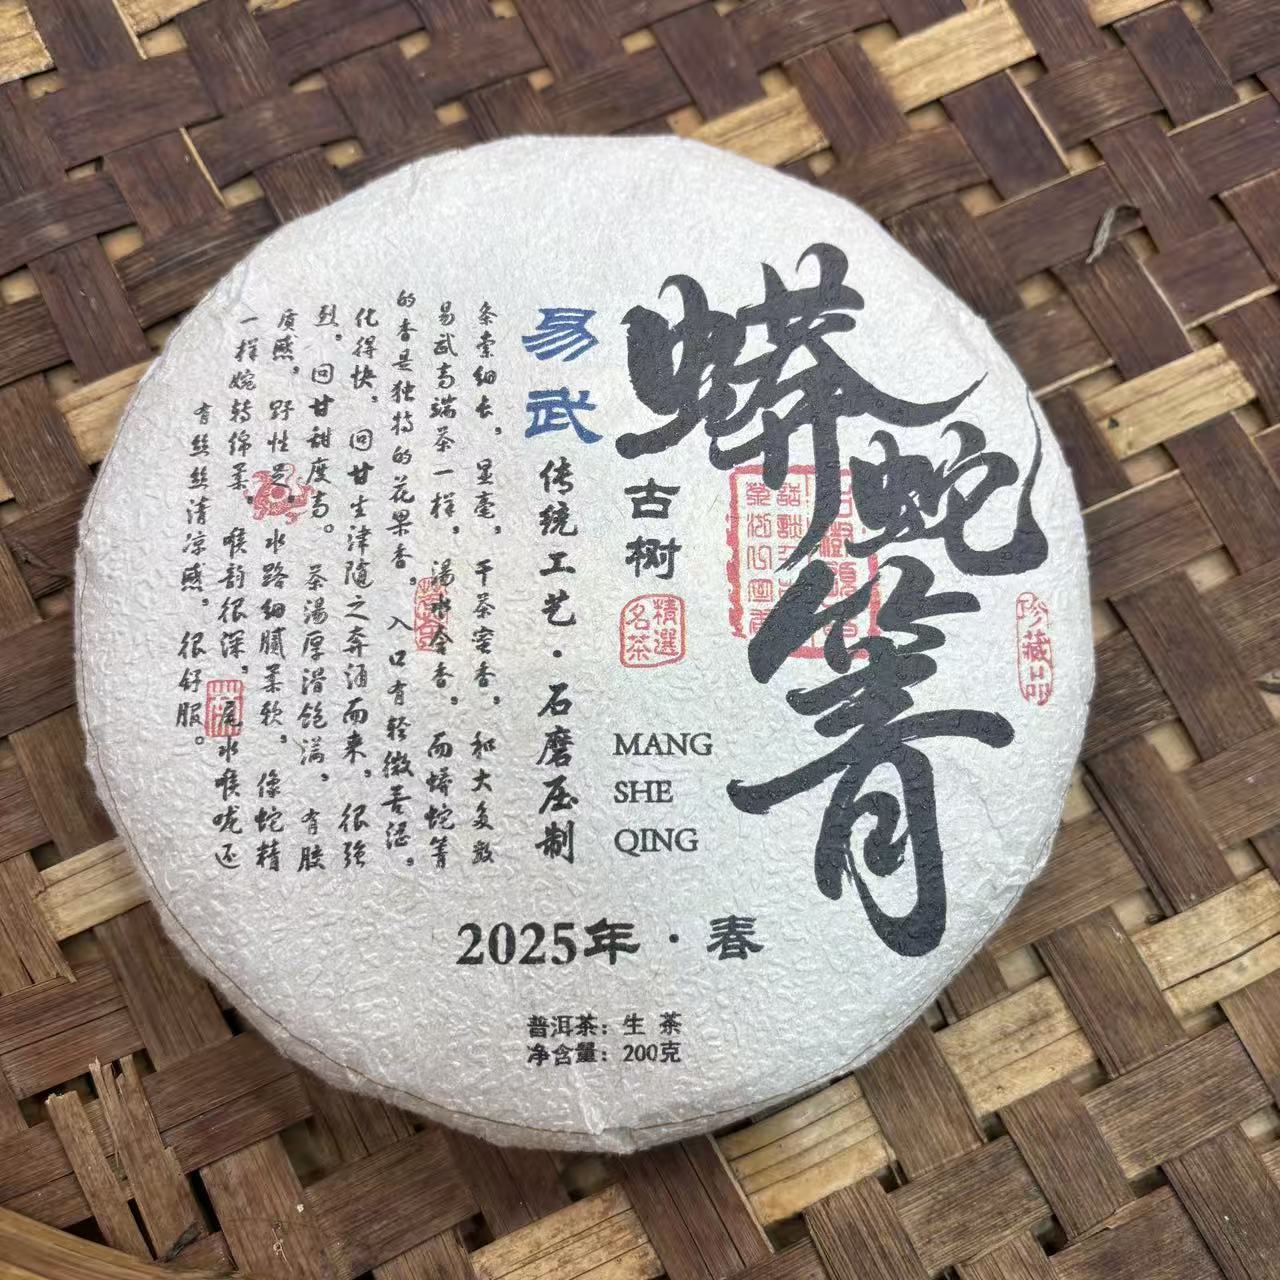 蟒蛇箐
古树
精選
名茶
MANG
SHE
QING
珍藏品
易武
传统工艺·石磨压制
条索细长，显毫，干茶蜜香，和大多数
易武高端茶一样，汤水含香，而蟒蛇箐
的香是独特的花果香，入口有轻微苦涩，
化得快，回甘生津随之奔涌而来，很强
烈，回甘甜度高。茶汤厚滑饱满，有胶
质感，野性足，水路细腻柔软，像蛇精
一样婉转绵柔，喉韵很深，尾水喉咙还
有丝丝清凉感，很舒服。
2025年·春
普洱茶：生 茶
净含量：200克